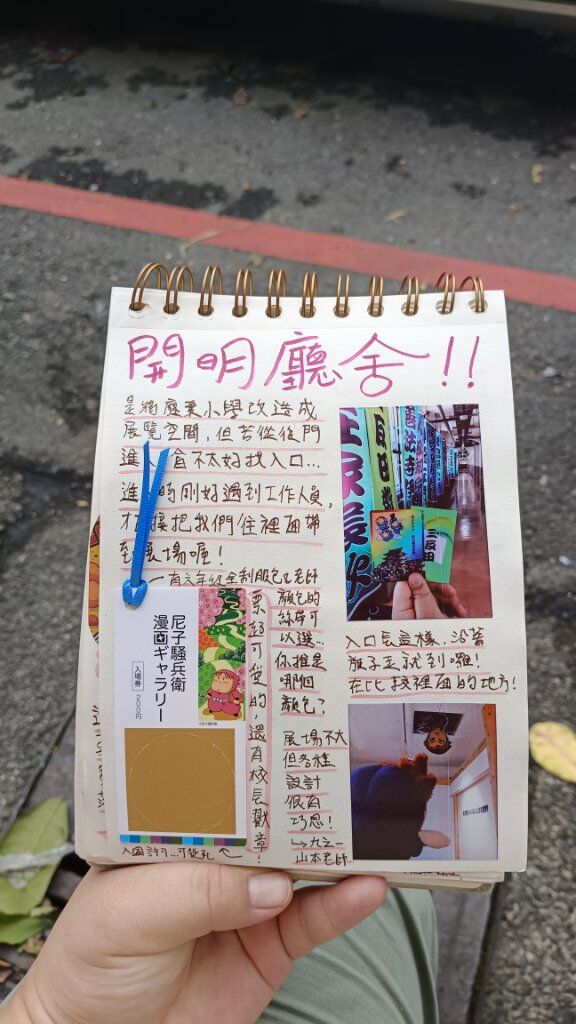 開明廳舍!!
是將廢棄小學改造成
展覽空間,但若從後門
進入會不太好找入口...
進 時剛好遇到工作人員,
才 接把我們往裡面帶
至 展場喔!
一有六年級全制服色&老師
顏色的
絲帶可
以選...
你推是
哪個
顏色?
票超可愛的,還有校長戳章!
尼子騒兵衛
漫画ギャラリー
入場券
200円
入園許可...可愛死
展場不大
但各種
設計
很有
巧思!
↳九之一
山本老師
入口長這樣,沿著
旗子走就到囉!
在比較裡面的地方!